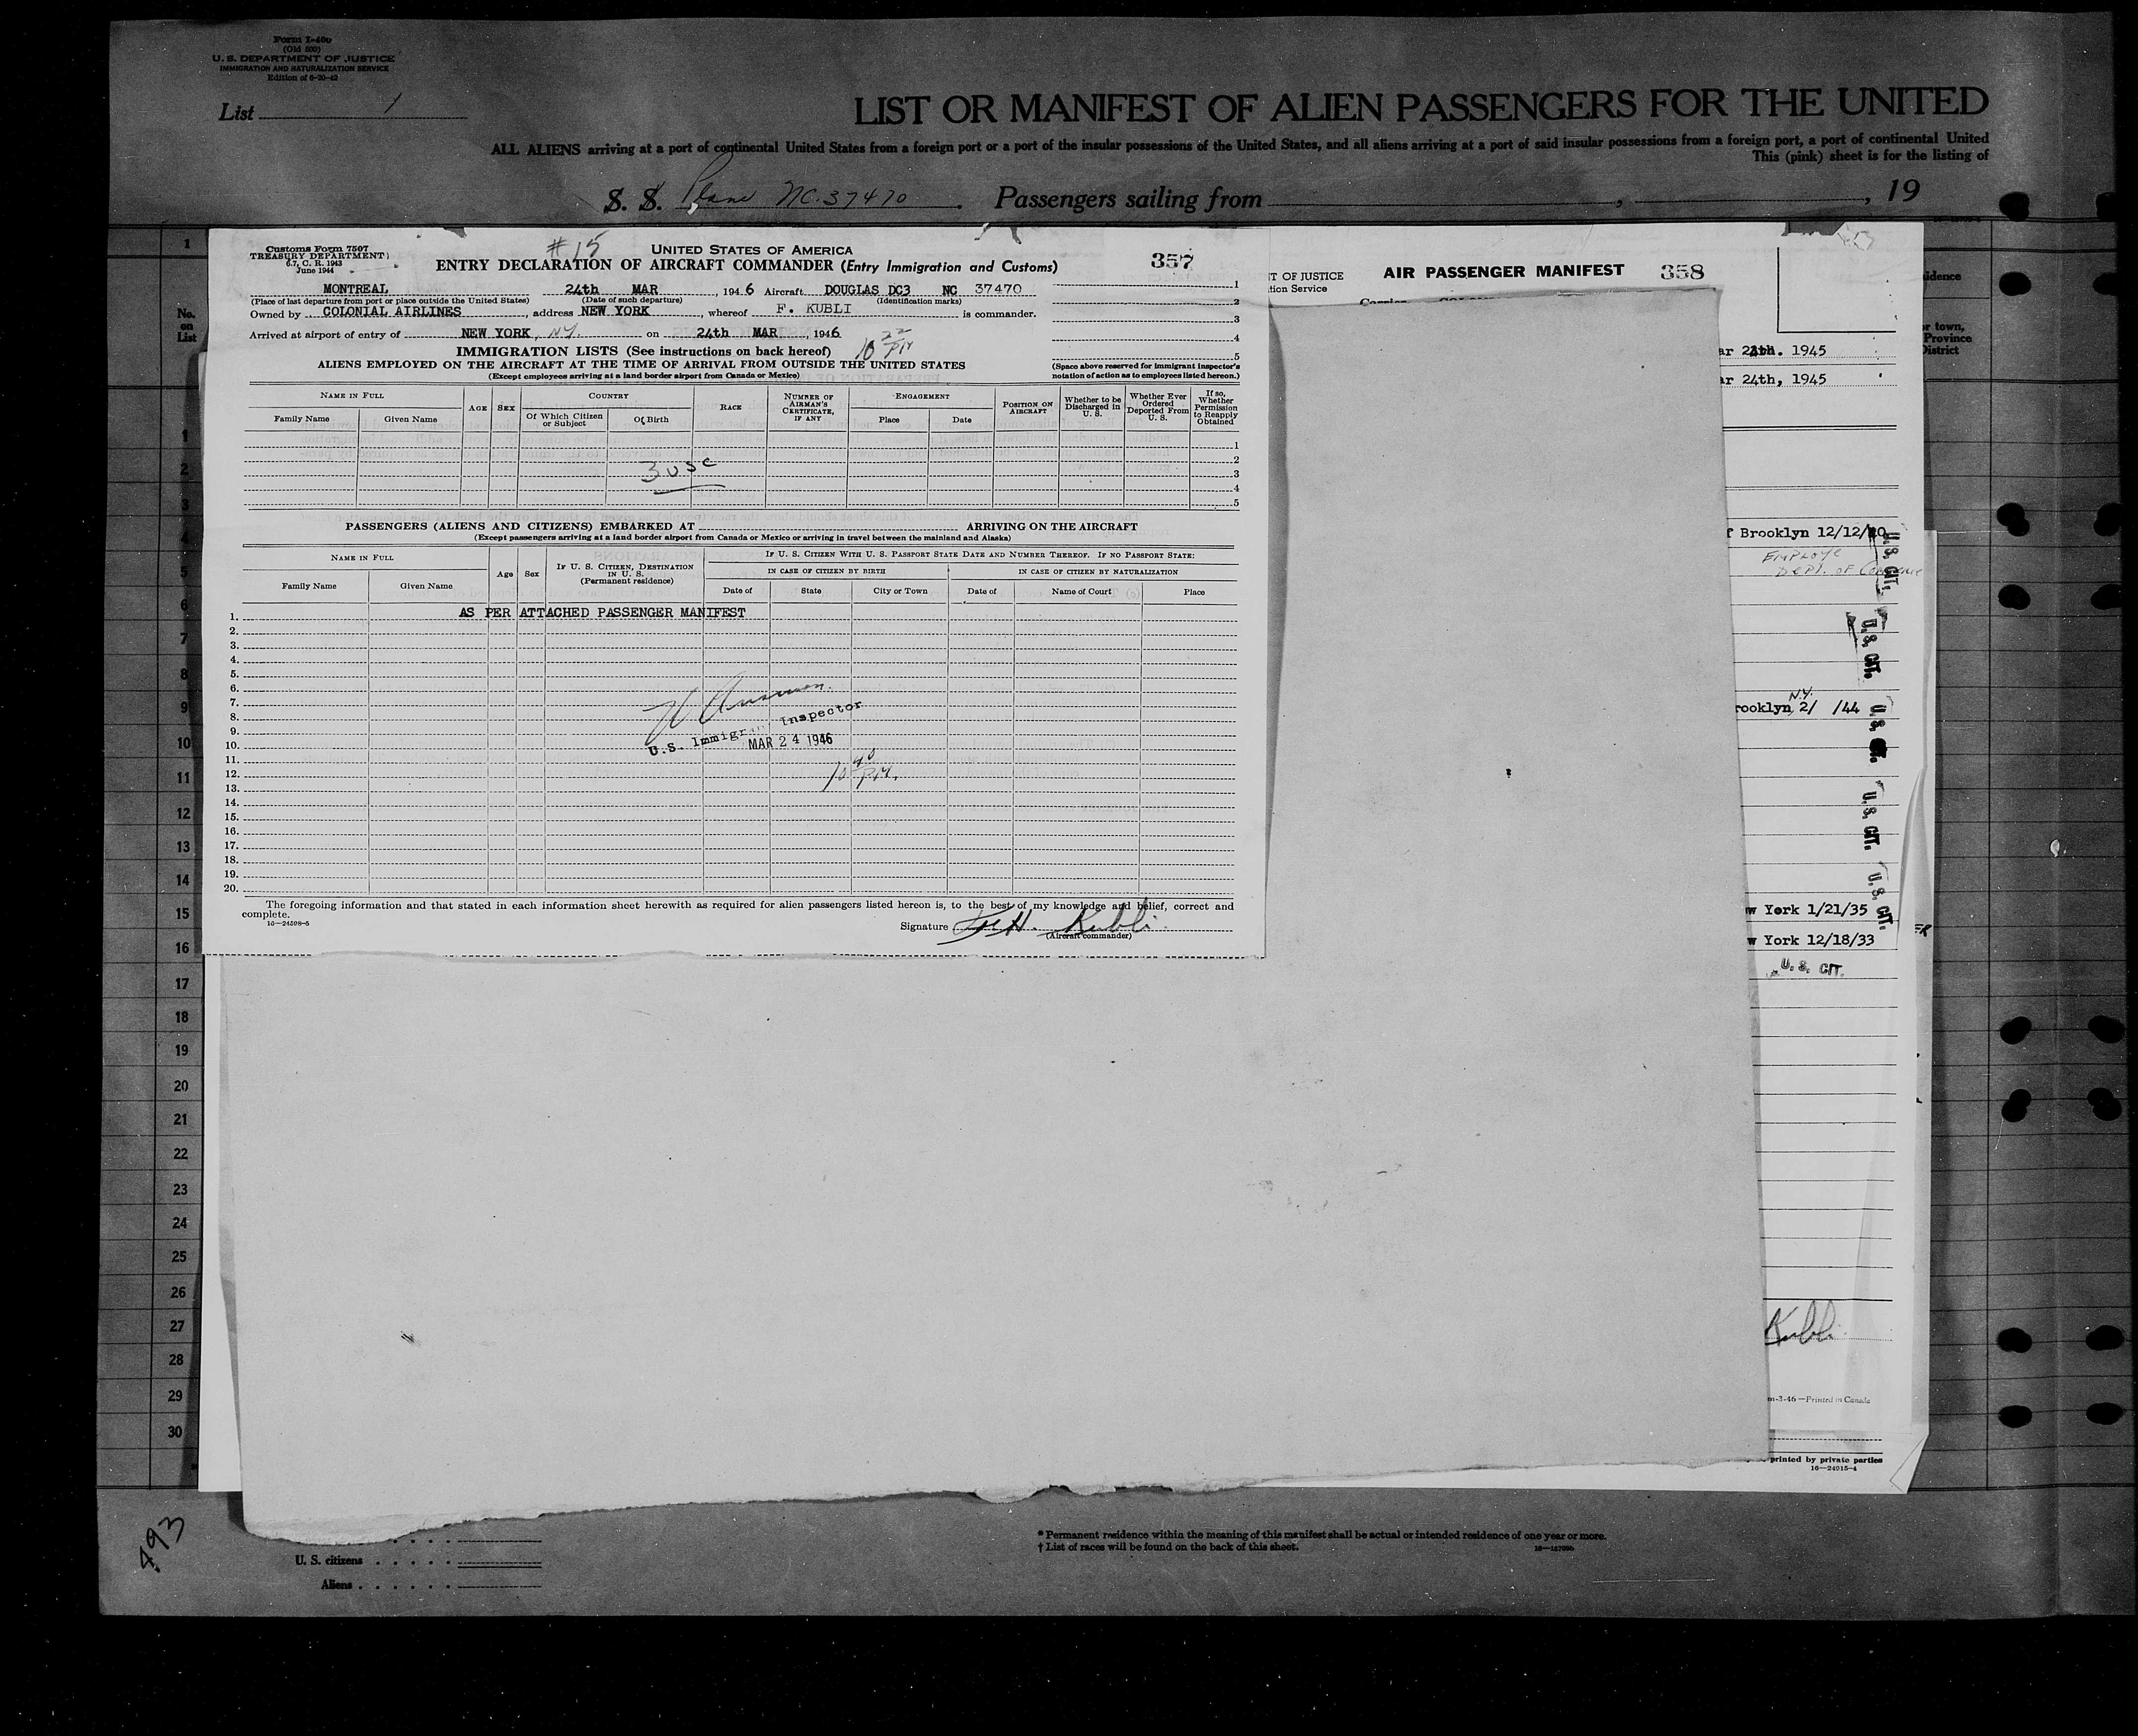 Form I-40o
(Old 500)
U. S. DEPARTMENT OF JUSTICE
IMMIGRATION AND NATURALIZATION SERVICE
Edition of 6-20-42
List 1
LIST OR MANIFEST OF ALIEN PASSENGERS FOR THE UNITED
ALL ALIENS arriving at a port of continental United States from a foreign port or a port of the insular possessions of the United States, and all aliens arriving at a port of said insular possessions from a foreign port, a port of continental United
This (pink) sheet is for the listing of
S. S. Plane NC.37470. Passengers sailing from , , 19
Customs Form 7507
TREASURY DEPARTMENT
6.7, C. R. 1943
June 1944
#15
UNITED STATES OF AMERICA
ENTRY DECLARATION OF AIRCRAFT COMMANDER (Entry Immigration and Customs)
357
MONTREAL 24th MAR, 1946 Aircraft DOUGLAS DC3 NC 37470
(Place of last departure from port or place outside the United States) (Date of such departure) (Identification marks)
Owned by COLONIAL AIRLINES, address NEW YORK, whereof F. KUBLI is commander.
Arrived at airport of entry of NEW YORK, N.Y. on 24th MAR, 1946
10 22 PM
IMMIGRATION LISTS (See instructions on back hereof)
ALIENS EMPLOYED ON THE AIRCRAFT AT THE TIME OF ARRIVAL FROM OUTSIDE THE UNITED STATES
(Except employees arriving at a land border airport from Canada or Mexico)
1
2
3
4
5
(Space above reserved for immigrant inspector's
notation of action as to employees listed hereon.)
NAME IN FULL
Family Name
Given Name
AGE
SEX
COUNTRY
Of Which Citizen or Subject
Of Birth
RACE
NUMBER OF AIRMAN'S CERTIFICATE, IF ANY
ENGAGEMENT
Place
Date
POSITION ON AIRCRAFT
Whether to be Discharged in U. S.
Whether Ever Ordered Deported From U. S.
If so, Whether Permission to Reapply Obtained
1
2
3
4
5
3 USC
PASSENGERS (ALIENS AND CITIZENS) EMBARKED AT ARRIVING ON THE AIRCRAFT
(Except passengers arriving at a land border airport from Canada or Mexico or arriving in travel between the mainland and Alaska)
NAME IN FULL
Family Name
Given Name
Age
Sex
IF U. S. CITIZEN, DESTINATION IN U. S.
(Permanent residence)
IF U. S. CITIZEN WITH U. S. PASSPORT STATE DATE AND NUMBER THEREOF. IF NO PASSPORT STATE:
IN CASE OF CITIZEN BY BIRTH
IN CASE OF CITIZEN BY NATURALIZATION
Date of
State
City or Town
Date of
Name of Court
Place
1. AS PER ATTACHED PASSENGER MANIFEST
2.
3.
4.
5.
6.
7.
8.
9.
10.
11.
12.
13.
14.
15.
16.
17.
18.
19.
20.
U.S. Immigr Inspector
MAR 24 1946
10 40 P.M.
The foregoing information and that stated in each information sheet herewith as required for alien passengers listed hereon is, to the best of my knowledge and belief, correct and
complete.
16—24598-5
Signature F. H. Kubli
(Aircraft commander)
T OF JUSTICE
tion Service
AIR PASSENGER MANIFEST
358
1945
ar 24th, 1945
f Brooklyn 12/12/20
EMPLOYE
DEPT. OF COMMERCE
U.S. CIT.
U.S. CIT.
N.Y.
rooklyn, 2/ /44
U.S. CIT.
U.S. CIT.
w York 1/21/35
w York 12/18/33
U.S. CIT.
Kubli
m-3-46—Printed in Canada
printed by private parties
16—24915-4
idence
or town,
Province
District
No.
on
List
1
1
2
3
4
5
6
7
8
9
10
11
12
13
14
15
16
17
18
19
20
21
22
23
24
25
26
27
28
29
30
493
U. S. citizens
Aliens
* Permanent residence within the meaning of this manifest shall be actual or intended residence of one year or more.
† List of races will be found on the back of this sheet.